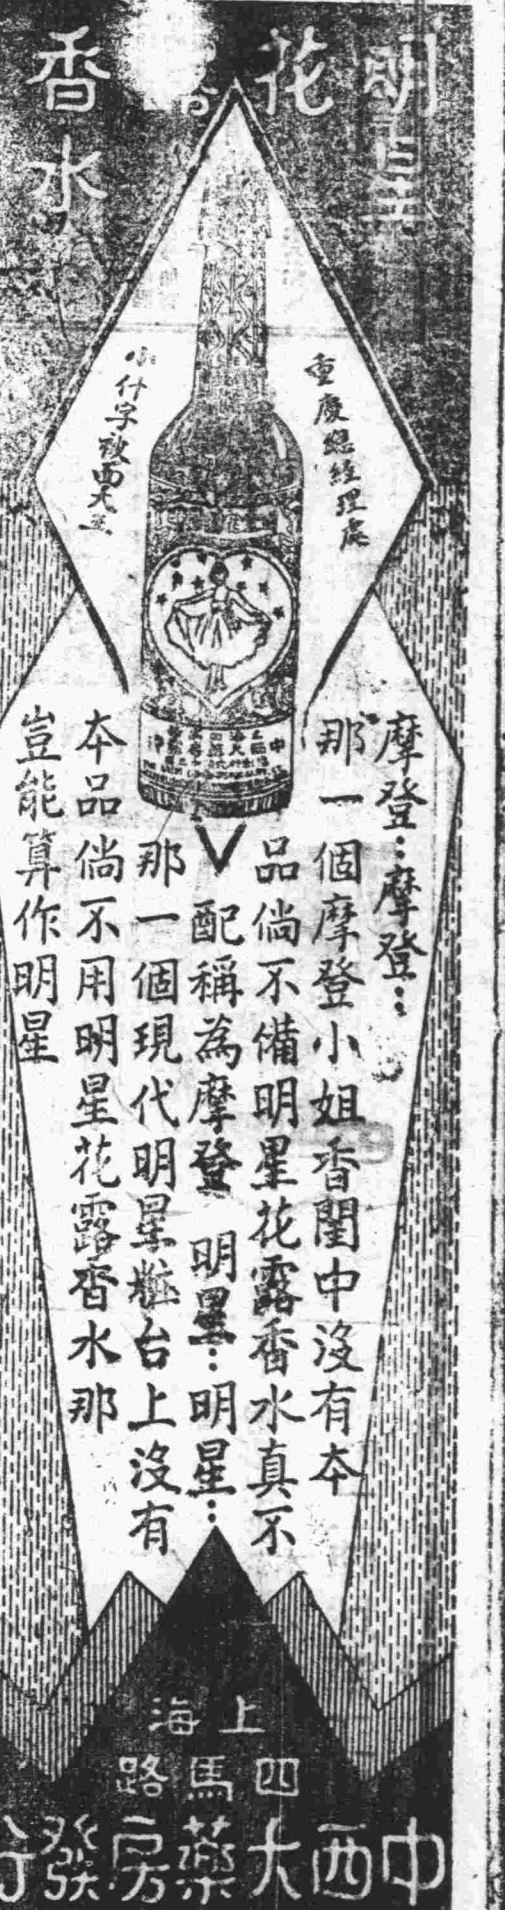 明星花露香水
重慶總經理處
小什字政西大藥
摩登…摩登…
那一個摩登小姐香閨中沒有本
品倘不備明星花露香水真不
配稱為摩登　明星…明星…
那一個現代明星粧台上沒有
本品倘不用明星花露香水那
豈能算作明星
上海
四馬路
中西大藥房發行